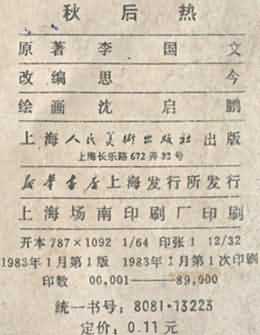 秋后热
原著 李国文
改编 思今
绘画 沈启鹏
上海人民美术出版社出版
上海长乐路672弄33号
新华书店上海发行所发行
上海场南印刷厂印刷
开本787×1092 1/64 印张1 12/32
1983年1月第1版 1983年1月第1次印刷
印数 00,001——89,000
统一书号：8081·13223
定价：0.11元